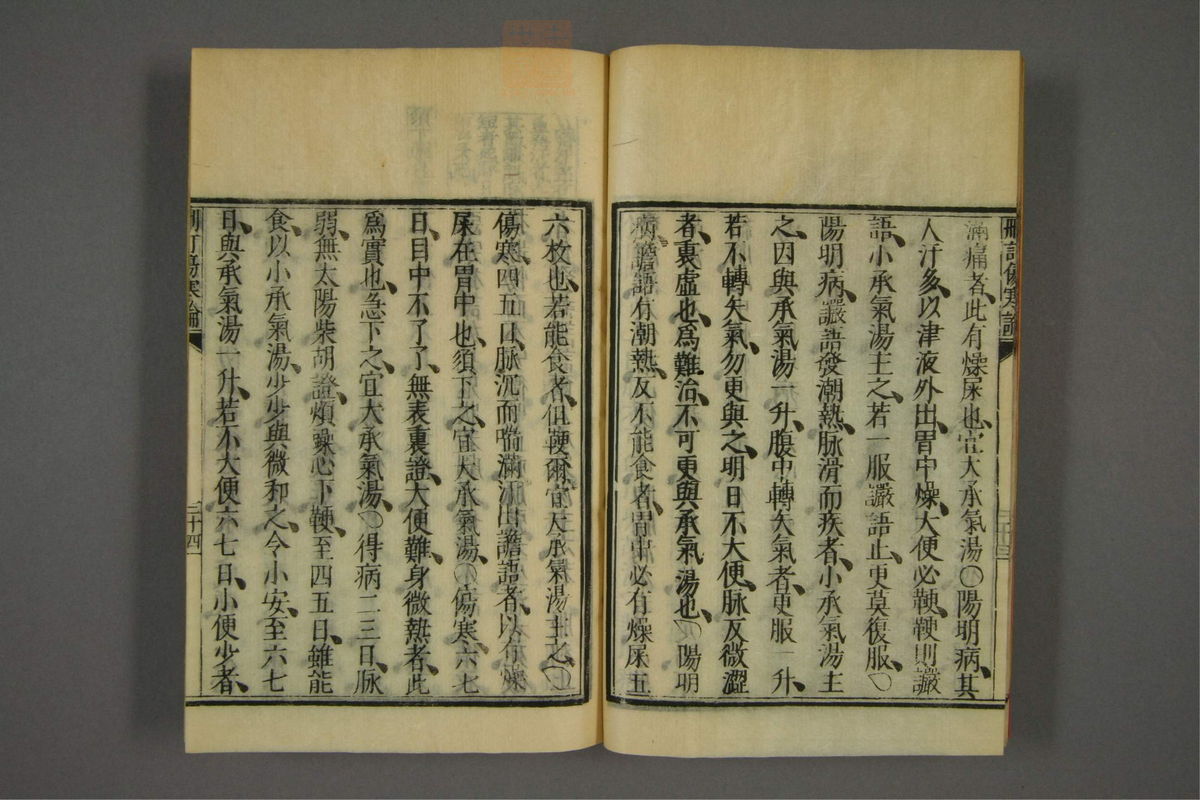 刪訂傷寒論
滿痛者、此有燥屎也、宜大承氣湯○陽明病、其
人汗多、以津液外出、胃中燥、大便必鞕、鞕則讝
語、小承氣湯主之、若一服讝語止、更莫復服、○
陽明病、讝語發潮熱、脉滑而疾者、小承氣湯主
之、因與承氣湯一升、腹中轉矢氣者、更服一升、
若不轉矢氣、勿更與之、明日不大便、脉反微澀
者、裏虛也、爲難治、不可更與承氣湯也、○陽明
病、讝語有潮熱、反不能食者、胃中必有燥屎五
六枚也、若能食者、但鞕爾、宜大承氣湯主之、○
傷寒四五日、脉沉而喘滿、
譫語者、以有燥
屎在胃中也、須下之、宜大承氣湯、○傷寒六七
日、目中不了了、無表裏證、大便難、身微熱者、此
爲實也、急下之、宜大承氣湯、○得病二三日、脉
弱、無太陽柴胡證、煩躁心下鞕、至四五日、雖能
食、以小承氣湯、少少與微和之、令小安、至六七
日、與承氣湯一升、若不大便六七日、小便少者、
刪訂傷寒論
二十四